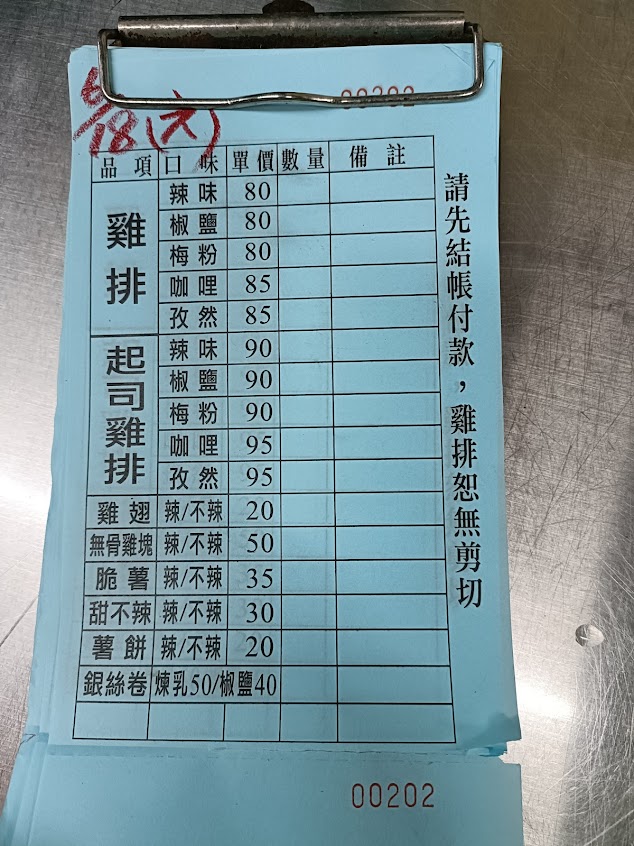 00202
6/18(六)
品項 口味 單價 數量 備註
雞排
辣味 80
椒鹽 80
梅粉 80
咖哩 85
孜然 85
起司雞排
辣味 90
椒鹽 90
梅粉 90
咖哩 95
孜然 95
雞翅 辣/不辣 20
無骨雞塊 辣/不辣 50
脆薯 辣/不辣 35
甜不辣 辣/不辣 30
薯餅 辣/不辣 20
銀絲卷 煉乳50/椒鹽40
請先結帳付款，雞排恕無剪切
00202